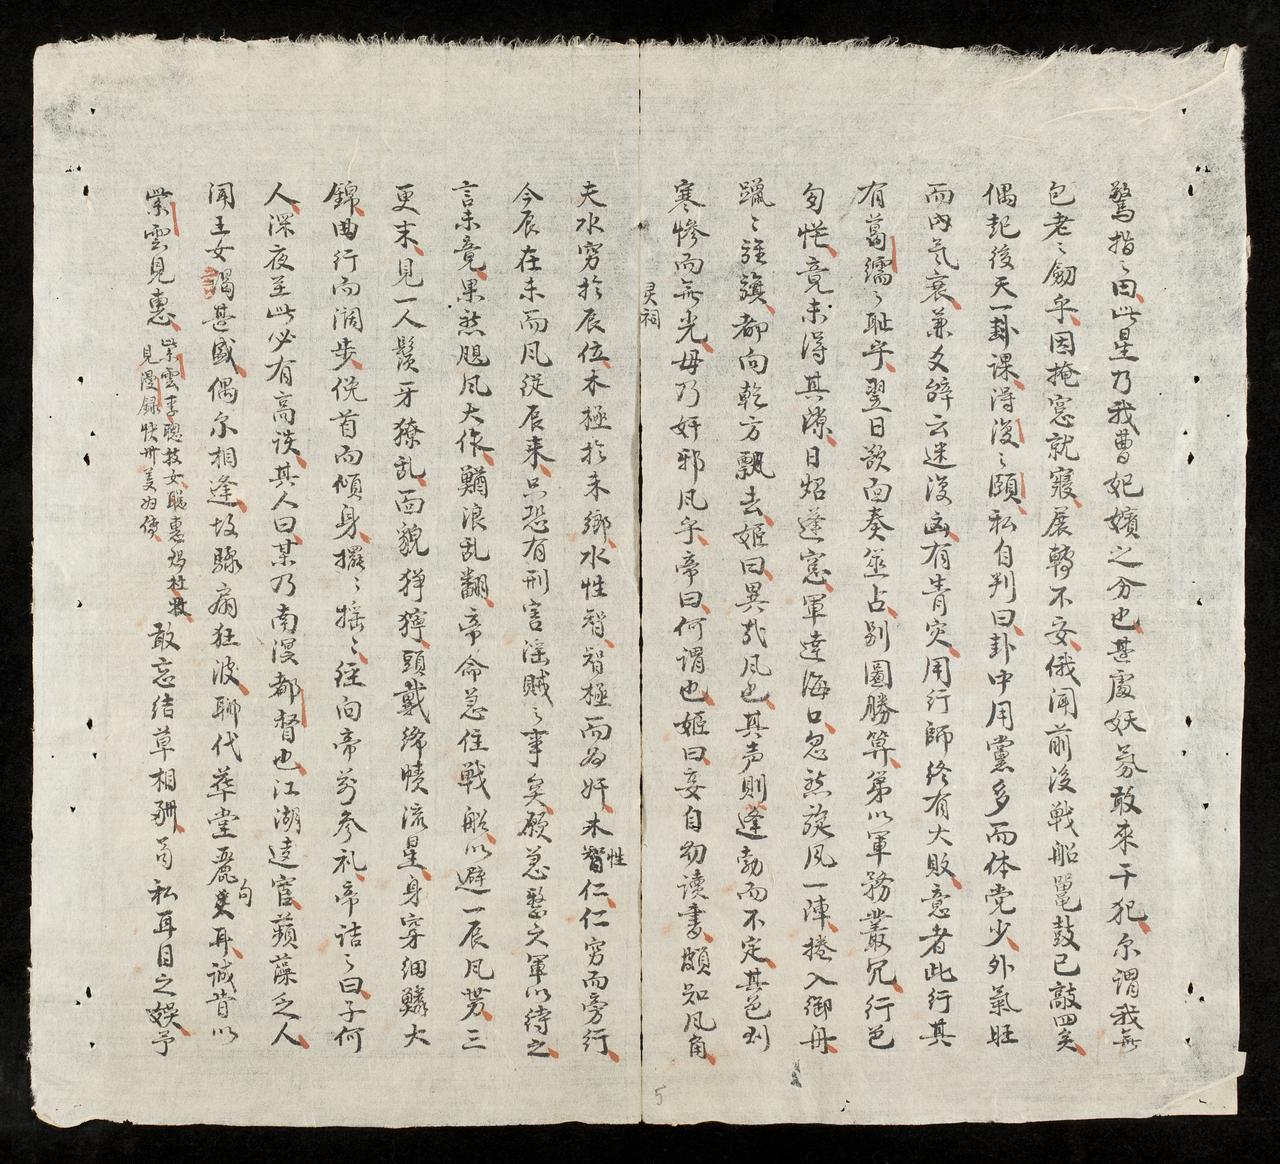 驚指之曰此星乃我曹妃嬪之分也甚處妖氛敢來干犯尔謂我無
包老之劒乎因掩窓就寢展轉不安俄聞前後戰船鼉鼓已敲四矣
偶起後天一卦課得復之頤私自判曰卦中用黨多而体党少外氣旺
而内气衰兼爻辝云迷復凶有眚灾用行師终有大敗意者此行其
有葛繻之耻乎翌日欲面奏筮占别圖勝算第以軍務叢冗行色
匆忙竟未得其隙日炤蓬窓軍達海口忽然旋風一陣捲入御舟
躐躐旌旗都向乾方飄去姬曰異㢤風也其声則蓬勃而不定其色則
寒惨而無光毋乃奸邪風乎帝曰何謂也姬曰妾自幼读書頗知風角
灵祠
夫水窮於辰位木極於未鄉水性智智極而为奸木性仁仁窮而旁行
今辰在未而风従辰来只恐有刑害滛賊之事矣願急慗六軍以待之
言未竟果然颶风大作鰌浪乱翻帝命急住戰船以避一辰风劳三
更末見一人鬓牙獠乱面貌狰獰頭戴絳幘流星身穿細鱗大
錦曲行而濶步俛首而傾身擺擺摇摇徃向帝前参礼帝詰之曰子何
人深夜至此必有高談其人曰某乃南溟都督也江湖逺宦蘋藻乏人
闻王女謁甚盛偶尔相逢故驟扇狂波聊代華堂麗句耳誠肯以
紫雲見惠
紫雲李聰妓女聪惠为杜牧
見漫録快卅美为使
敢忘结草相酬苟私耳目之娱予
5